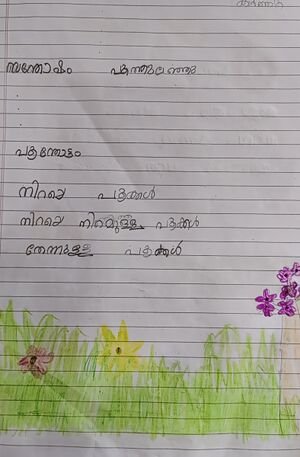 സന്തോഷം പൂന്തുമ്പഞ്ഞു
പൂന്തോട്ടം
നിറയെ പൂക്കൾ
നിറയെ നിറമുള്ള പൂക്കൾ
തേനുള്ള പൂക്കൾ